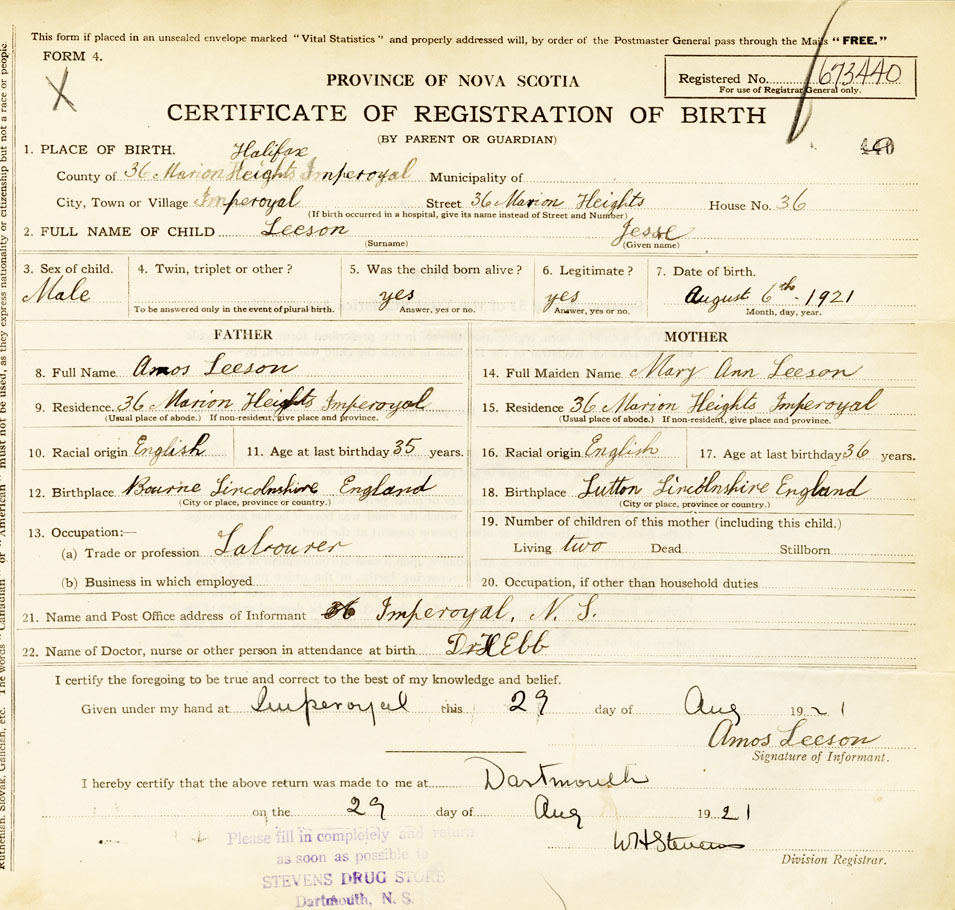 This form if placed in an unsealed envelope marked "Vital Statistics" and properly addressed will, by order of the Postmaster General pass through the Mails "FREE."
FORM 4.
PROVINCE OF NOVA SCOTIA
Registered No. 673440
For use of Registrar General only.
CERTIFICATE OF REGISTRATION OF BIRTH
(BY PARENT OR GUARDIAN)
440
1. PLACE OF BIRTH. Halifax
County of 36 Marion Heights Imperoyal Municipality of
City, Town or Village Imperoyal Street 36 Marion Heights House No. 36
(If birth occurred in a hospital, give its name instead of Street and Number)
2. FULL NAME OF CHILD Leeson Jesse
(Surname) (Given name)
3. Sex of child. 4. Twin, triplet or other? 5. Was the child born alive? 6. Legitimate? 7. Date of birth.
Male yes yes August 6th - 1921
To be answered only in the event of plural birth. Answer, yes or no. Answer, yes or no. Month, day, year.
FATHER MOTHER
8. Full Name Amos Leeson 14. Full Maiden Name Mary Ann Leeson
9. Residence. 36 Marion Heights Imperoyal 15. Residence 36 Marion Heights Imperoyal
(Usual place of abode.) If non-resident, give place and province. (Usual place of abode.) If non-resident, give place and province.
10. Racial origin English 11. Age at last birthday 35 years. 16. Racial origin English 17. Age at last birthday 36 years.
12. Birthplace Bourne Lincolnshire England 18. Birthplace Sutton Lincolnshire England
(City or place, province or country.) (City or place, province or country.)
13. Occupation:— 19. Number of children of this mother (including this child.)
(a) Trade or profession Labourer Living two Dead Stillborn
(b) Business in which employed 20. Occupation, if other than household duties
21. Name and Post Office address of Informant 36 Imperoyal, N. S.
22. Name of Doctor, nurse or other person in attendance at birth Dr H Ebb
I certify the foregoing to be true and correct to the best of my knowledge and belief.
Given under my hand at Imperoyal this 29 day of Aug 1921
Amos Leeson
Signature of Informant.
I hereby certify that the above return was made to me at Dartmouth
on the 29 day of Aug 1921
WHStevens
Division Registrar.
Please fill in completely and return
as soon as possible to
STEVENS DRUG STORE
Dartmouth, N. S.
Ruthenian, Slovak, Galician, etc. The words "Canadian" or "American" must not be used, as they express nationality or citizenship but not a race or people